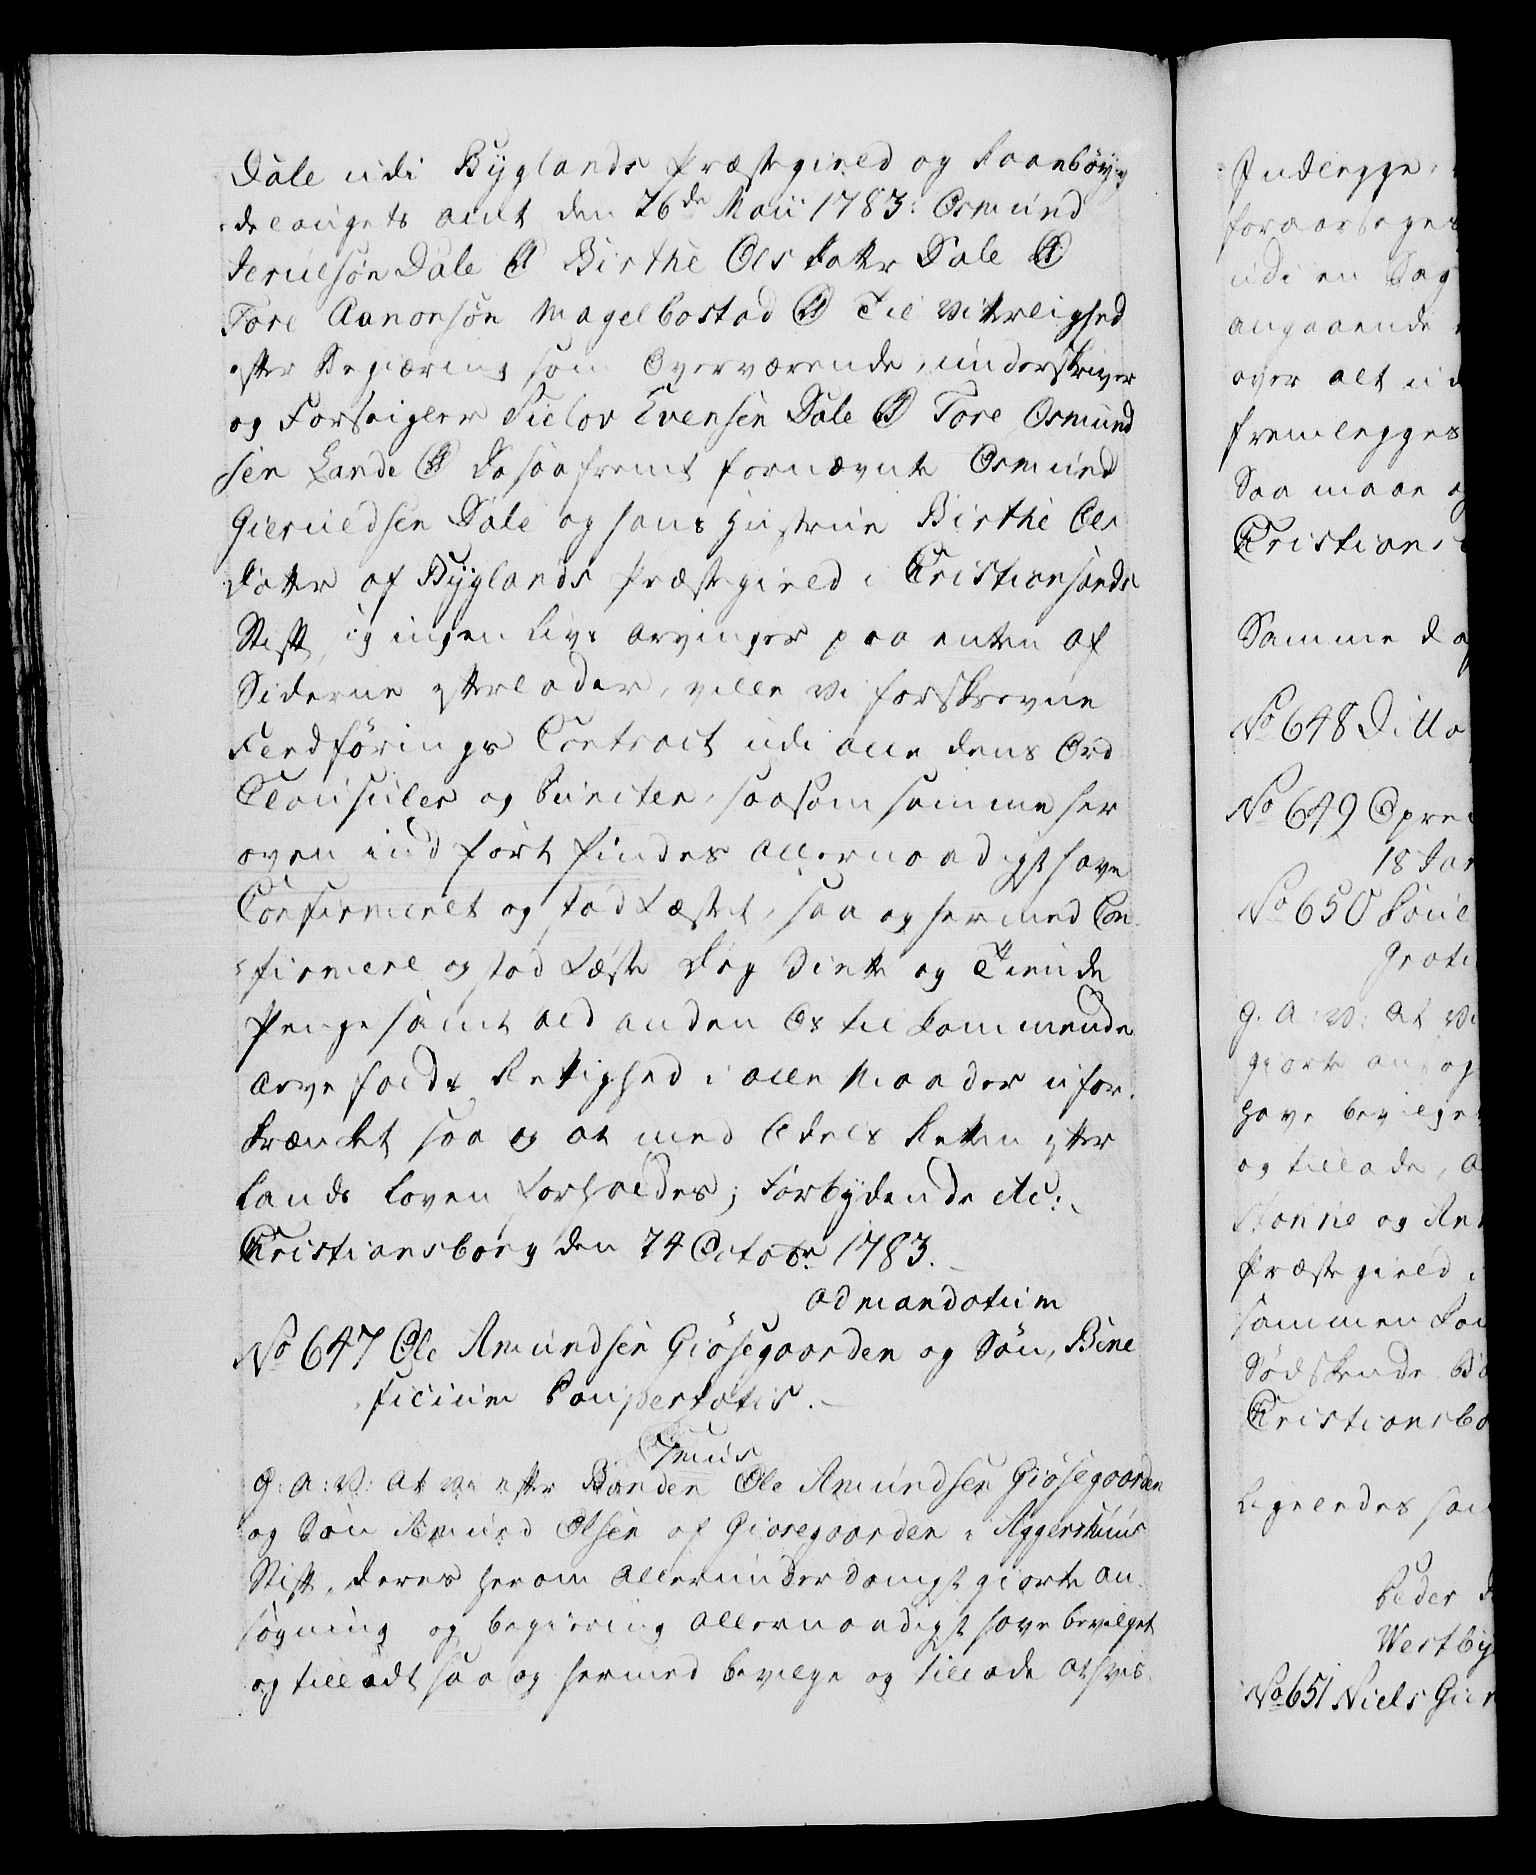 Dale udi Byglands Præstegield og Raabøy-
delaugets amt den 26de Maii 1783: Osmund
Jerulsøn Dale Birthe Olsdatter Dale
Tore Aanonsøn Magelbostad Til Vitterlighed
efter Begiæring som Overværende, underskriver
og Forseigler Evensen Dale Tore Osmund
sen Lande Da saafremt fornævnte Osmund
Gieruldsen Dale og hans Hustrue Birthe Ols
datter af Byglands Præstegield i Christiansands
Stift, ig ingen Livs Arvinger paa enten af
Siderne efterlader, ville Vi forskrevne
Contract udi alle dens Ord
Clausuler og Puncter, saasom samme her
oven indført findes allernaadigst have
Confirmeret og stadfæstet, saa og hermed Con-
firmere og stadfæste Dog Siette og Tiende
Penge samt ald anden Os tilkommende
Arvefalds Rettighed i alle Maader ufor-
krænket saa og at med Odels Retten efter
Lands Loven forholdes; Forbydende etc:
Christiansborg den 24 Octobr 1783.
ad mandatum
No 647 Ole Amundsen Giøsegaarden og Søn, Bene
ficium Paupertatis.
G: A: V: at vi efter Bonden Ole Amundsen Giøsegaarden
og Søn Amund Olsen af Giøsegaarden i Aggershuus
Stift, deres herom allerunderdanigst giorte An-
søgning og begiering allernaadigst have bevilget
og tilladt saa og hermed bevilge og tillade at hvis
Indlegge,
foraarsages
udi en Sag
angaaende
over alt ud
fremlegges
Saa maae og
Christians
Samme dag
No 648 Ditto
No 649
18 Jan
No 650
Grati
G. A: V: at Vi
giorte ansøg
have bevilget
og tillade, a
og An
Præstegield i
sammen
Sødskende B
Christiansbo
Ligelendes
Peder
Westby
No 651 Niels Gier